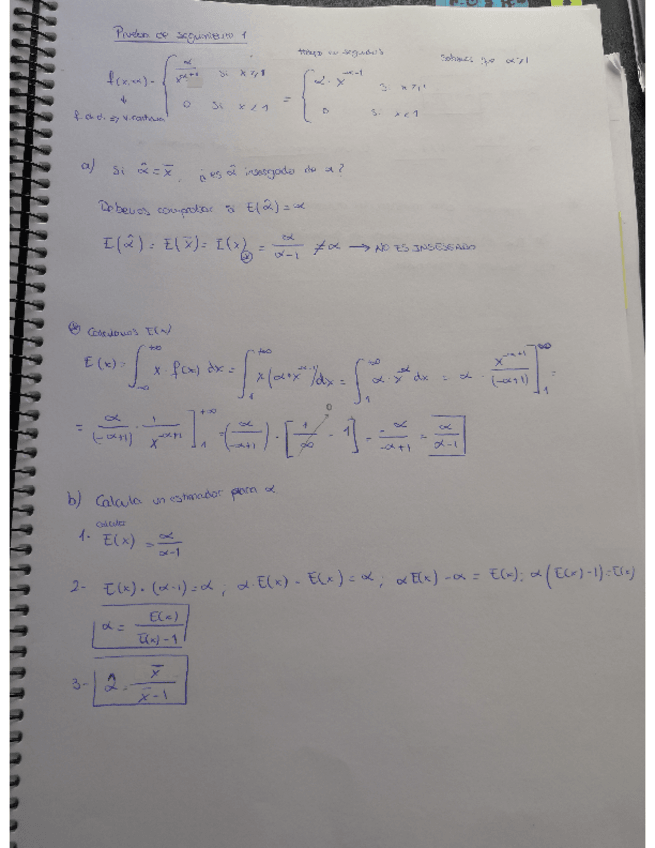 Prueba de seguimiento 1
tiempo en segundos
Sabemos que α>1
f(x,α) = { α/x^(α+1) si x≥1 = { α·x^(-α-1) si x≥1
0 si x<1 0 si x<1
f.d.d. => v. continua
a) Si α̂ = x̄, ¿es α̂ insesgado de α?
Debemos comprobar si E(α̂) = α
E(α̂) = E(x̄) = E(x) = α/(α-1) ≠ α → NO ES INSESGADO
(*) Calculamos E(x)
E(x) = ∫_{-∞}^{+∞} x·f(x) dx = ∫_1^{+∞} x(α·x^(-α-1)) dx = ∫_1^∞ α·x^(-α) dx = α · x^(-α+1)/(-α+1) ]_1^∞ =
= α/(-α+1) · 1/x^(-α+1) ]_1^{+∞} = (α/(-α+1)) · [1/∞ - 1] = -α/(-α+1) = α/(α-1)
b) Calcula un estimador para α
calcular
1- E(x) = α/(α-1)
2- E(x)·(α-1) = α ; α·E(x) - E(x) = α ; αE(x) - α = E(x) ; α(E(x)-1) = E(x)
α = E(x)/(E(x)-1)
3- α̂ = x̄/(x̄-1)